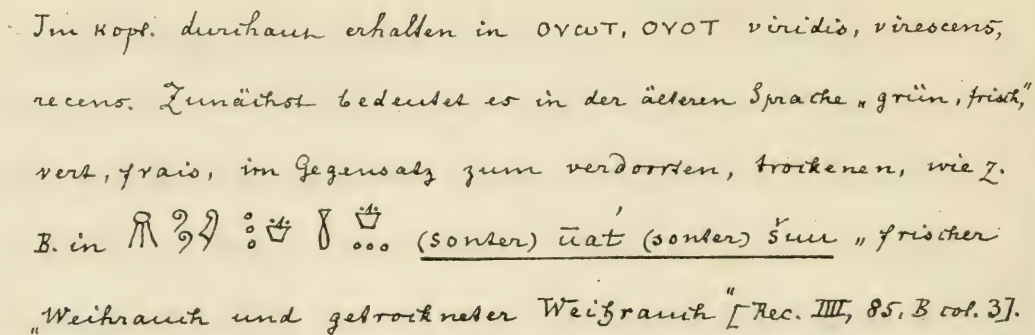 Im kopt. durchaus erhalten in ⲟⲩⲱⲧ, ⲟⲩⲟⲧ viridis, virescens,
recens. Zunächst bedeutet es in der älteren Sprache „grün, frisch,"
vert, frais, im Gegensatz zum verdorrten, trockenen, wie z.
B. in (sonter) ūat́ (sonter) šuu „frischer
„Weihrauch und getrockneter Weihrauch" [Rec. IIII, 85, B col. 3].